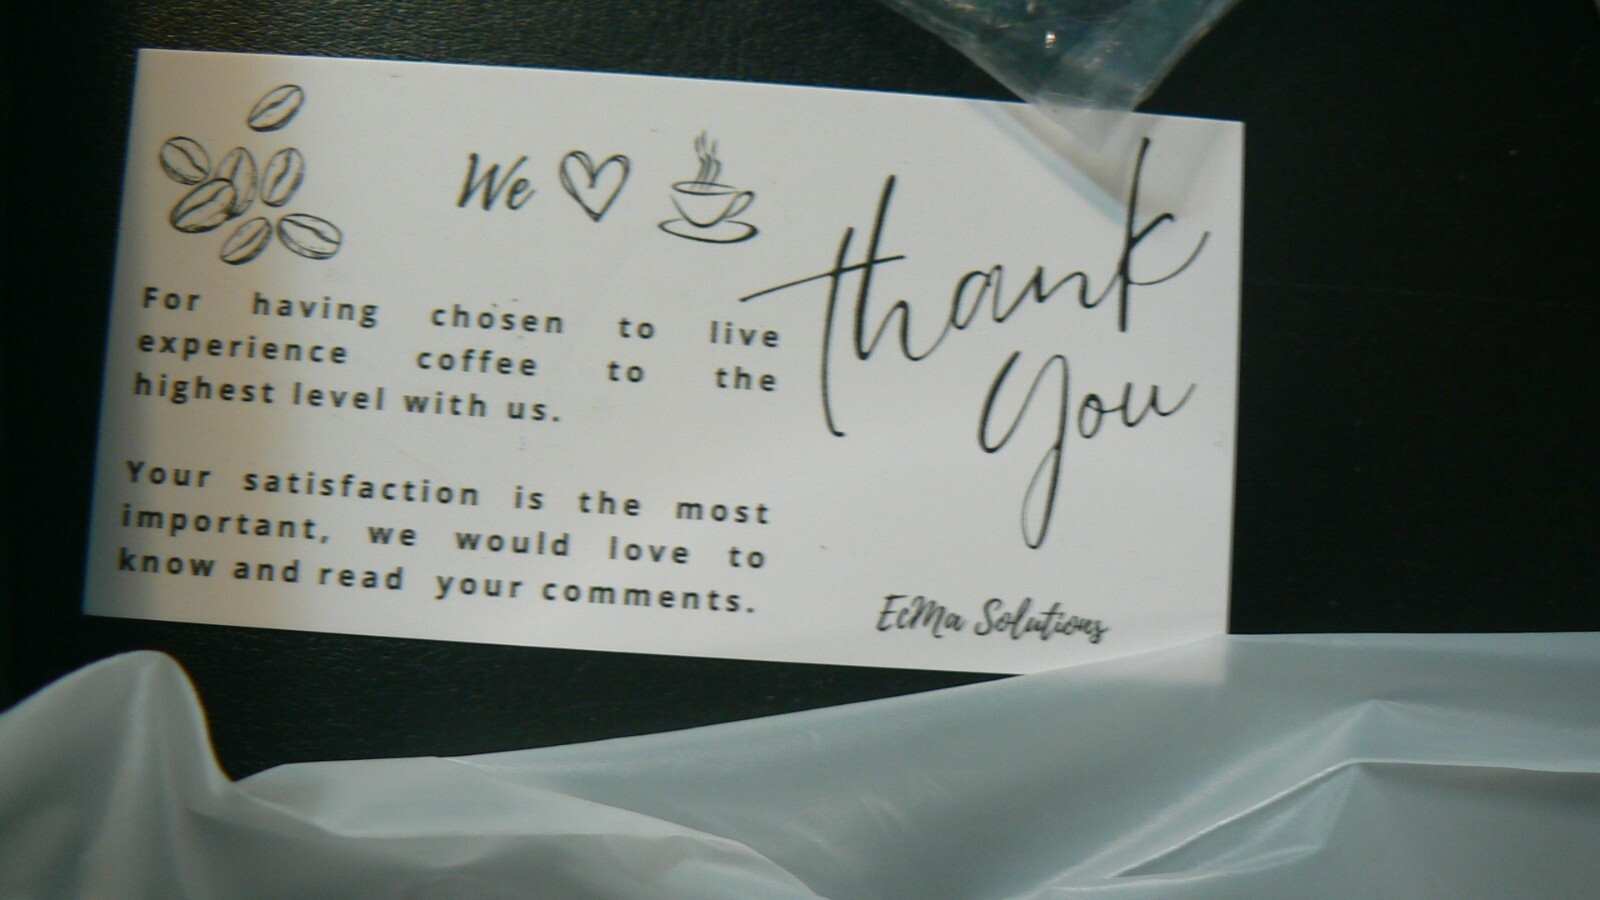 We
thank
you
For having chosen to live
experience coffee to the
highest level with us.
Your satisfaction is the most
important, we would love to
know and read your comments.
EcMa Solutions